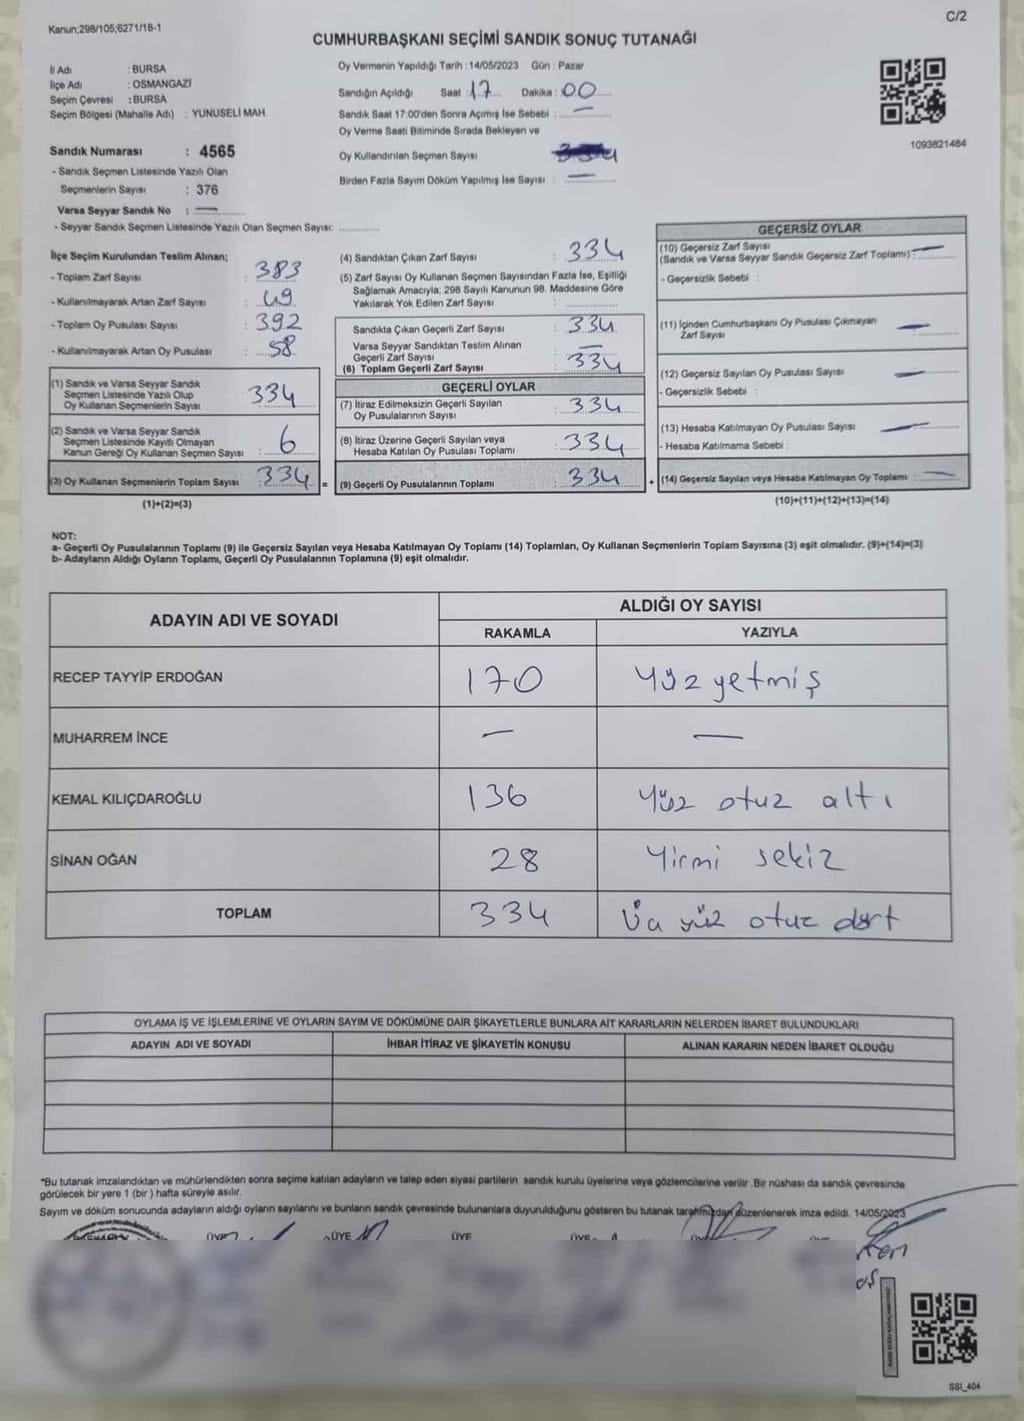 Kanun;298/105;6271/18-1
C/2
CUMHURBAŞKANI SEÇİMİ SANDIK SONUÇ TUTANAĞI
İl Adı : BURSA
İlçe Adı : OSMANGAZİ
Seçim Çevresi : BURSA
Seçim Bölgesi (Mahalle Adı) : YUNUSELİ MAH.
Sandık Numarası : 4565
- Sandık Seçmen Listesinde Yazılı Olan
Seçmenlerin Sayısı : 376
Varsa Seyyar Sandık No : —
- Seyyar Sandık Seçmen Listesinde Yazılı Olan Seçmen Sayısı: ............
Oy Vermenin Yapıldığı Tarih : 14/05/2023 Gün : Pazar
Sandığın Açıldığı Saat : 17 Dakika : 00
Sandık Saat 17:00'den Sonra Açımış İse Sebebi : —
Oy Verme Saati Bitiminde Sırada Bekleyen ve
Oy Kullandırılan Seçmen Sayısı
Birden Fazla Sayım Döküm Yapılmış İse Sayısı : —
1093821484
İlçe Seçim Kurulundan Teslim Alınan;
- Toplam Zarf Sayısı : 383
- Kullanılmayarak Artan Zarf Sayısı : 49
- Toplam Oy Pusulası Sayısı : 392
- Kullanılmayarak Artan Oy Pusulası : 58
(1) Sandık ve Varsa Seyyar Sandık
Seçmen Listesinde Yazılı Olup
Oy Kullanan Seçmenlerin Sayısı 334
(2) Sandık ve Varsa Seyyar Sandık
Seçmen Listesinde Kayıtlı Olmayan
Kanun Gereği Oy Kullanan Seçmen Sayısı : 6
(3) Oy Kullanan Seçmenlerin Toplam Sayısı 334 =
(1)+(2)=(3)
(4) Sandıktan Çıkan Zarf Sayısı : 334
(5) Zarf Sayısı Oy Kullanan Seçmen Sayısından Fazla İse, Eşitliği
Sağlamak Amacıyla; 298 Sayılı Kanunun 98. Maddesine Göre
Yakılarak Yok Edilen Zarf Sayısı :
Sandıkta Çıkan Geçerli Zarf Sayısı : 334
Varsa Seyyar Sandıktan Teslim Alınan
Geçerli Zarf Sayısı : —
(6) Toplam Geçerli Zarf Sayısı : 334
GEÇERLİ OYLAR
(7) İtiraz Edilmeksizin Geçerli Sayılan
Oy Pusulalarının Sayısı : 334
(8) İtiraz Üzerine Geçerli Sayılan veya
Hesaba Katılan Oy Pusulası Toplamı : 334
(9) Geçerli Oy Pusulalarının Toplamı : 334 +
GEÇERSİZ OYLAR
(10) Geçersiz Zarf Sayısı
(Sandık ve Varsa Seyyar Sandık Geçersiz Zarf Toplamı) : —
- Geçersizlik Sebebi :
(11) İçinden Cumhurbaşkanı Oy Pusulası Çıkmayan
Zarf Sayısı : —
(12) Geçersiz Sayılan Oy Pusulası Sayısı : —
- Geçersizlik Sebebi :
(13) Hesaba Katılmayan Oy Pusulası Sayısı : —
- Hesaba Katılmama Sebebi :
(14) Geçersiz Sayılan veya Hesaba Katılmayan Oy Toplamı : —
(10)+(11)+(12)+(13)=(14)
NOT:
a- Geçerli Oy Pusulalarının Toplamı (9) ile Geçersiz Sayılan veya Hesaba Katılmayan Oy Toplamı (14) Toplamları, Oy Kullanan Seçmenlerin Toplam Sayısına (3) eşit olmalıdır. (9)+(14)=(3)
b- Adayların Aldığı Oyların Toplamı, Geçerli Oy Pusulalarının Toplamına (9) eşit olmalıdır.
ADAYIN ADI VE SOYADI
ALDIĞI OY SAYISI
RAKAMLA YAZIYLA
RECEP TAYYİP ERDOĞAN 170 Yüz yetmiş
MUHARREM İNCE — —
KEMAL KILIÇDAROĞLU 136 Yüz otuz altı
SİNAN OĞAN 28 Yirmi sekiz
TOPLAM 334 yüz otuz dört
OYLAMA İŞ VE İŞLEMLERİNE VE OYLARIN SAYIM VE DÖKÜMÜNE DAİR ŞİKAYETLERLE BUNLARA AİT KARARLARIN NELERDEN İBARET BULUNDUKLARI
ADAYIN ADI VE SOYADI İHBAR İTİRAZ VE ŞİKAYETİN KONUSU ALINAN KARARIN NEDEN İBARET OLDUĞU
*Bu tutanak imzalandıktan ve mühürlendikten sonra seçime katılan adayların ve talep eden siyasi partilerin sandık kurulu üyelerine veya gözlemcilerine verilir .Bir nüshası da sandık çevresinde
görülecek bir yere 1 (bir ) hafta süreyle asılır.
Sayım ve döküm sonucunda adayların aldığı oyların sayılarını ve bunların sandık çevresinde bulunanlara duyurulduğunu gösteren bu tutanak tarafımızdan düzenlenerek imza edildi. 14/05/2023
ÜYE ÜYE ÜYE
SSI_404